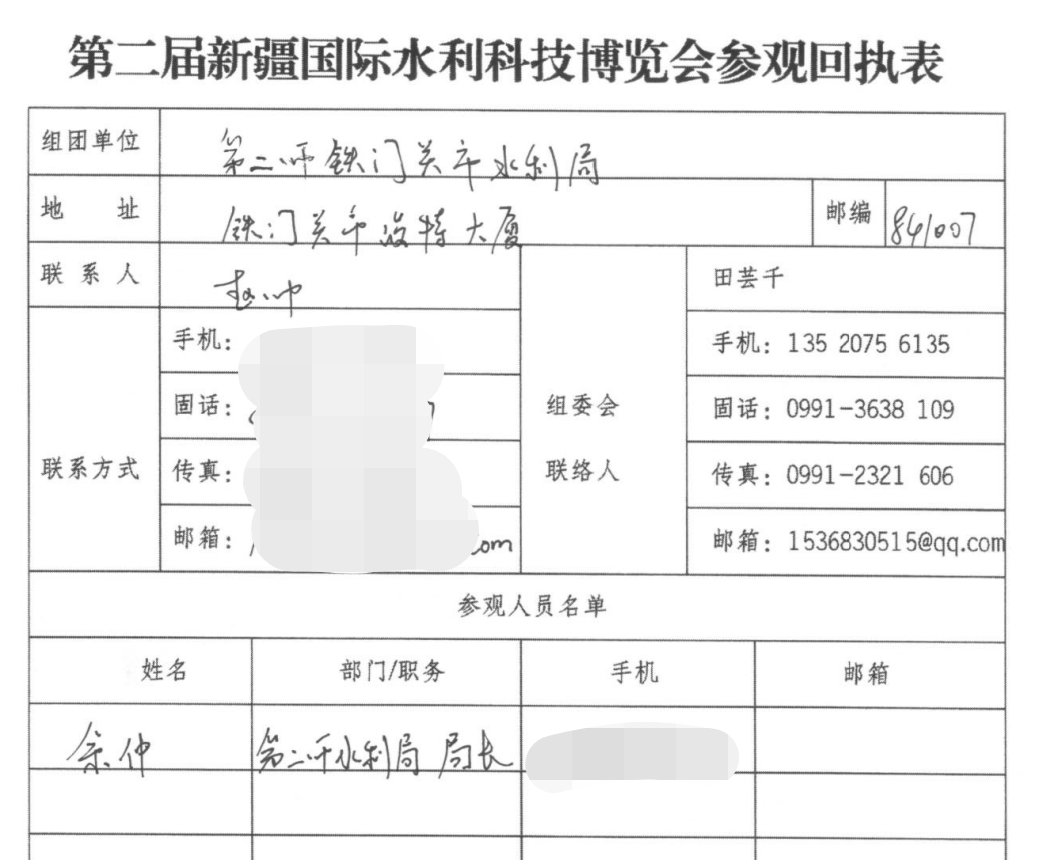 第二届新疆国际水利科技博览会参观回执表
组团单位 第二师铁门关市水利局
地 址 铁门关市 大厦 邮编 841007
联系人 赵帅 田芸千
联系方式 手机: 组委会联络人 手机: 135 2075 6135
固话: 固话: 0991-3638 109
传真: 传真: 0991-2321 606
邮箱: com 邮箱: 1536830515@qq.com
参观人员名单
姓名 部门/职务 手机 邮箱
余仲 第二师水利局 局长